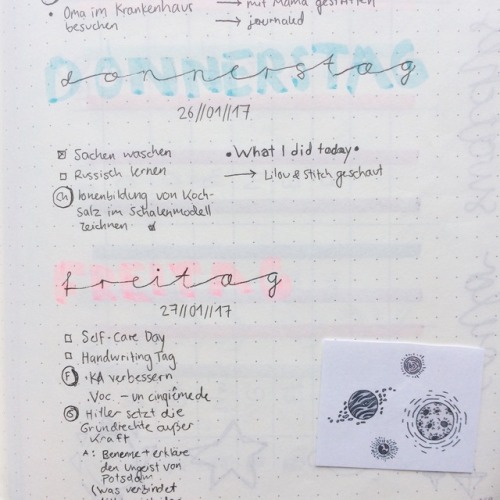 • Oma im Krankenhaus
besuchen
→ mit Mama gestritten
→ journaled
DONNERSTAG
donnerstag
26//01//17
☒ Sachen waschen
☐ Russisch lernen
Ch Ionenbildung von Koch-
salz im Schalenmodell
zeichnen
• What I did today •
→ Lilo & Stitch geschaut
FREITAG
freitag
27//01//17
☐ Self-Care Day
☐ Handwriting Tag
F • KA verbessern
Voc. – un cinqième de
G Hitler setzt die
Grundrechte außer
Kraft
A: Benenne + erkläre
den Ungeist von
Potsdam
(Was verbindet